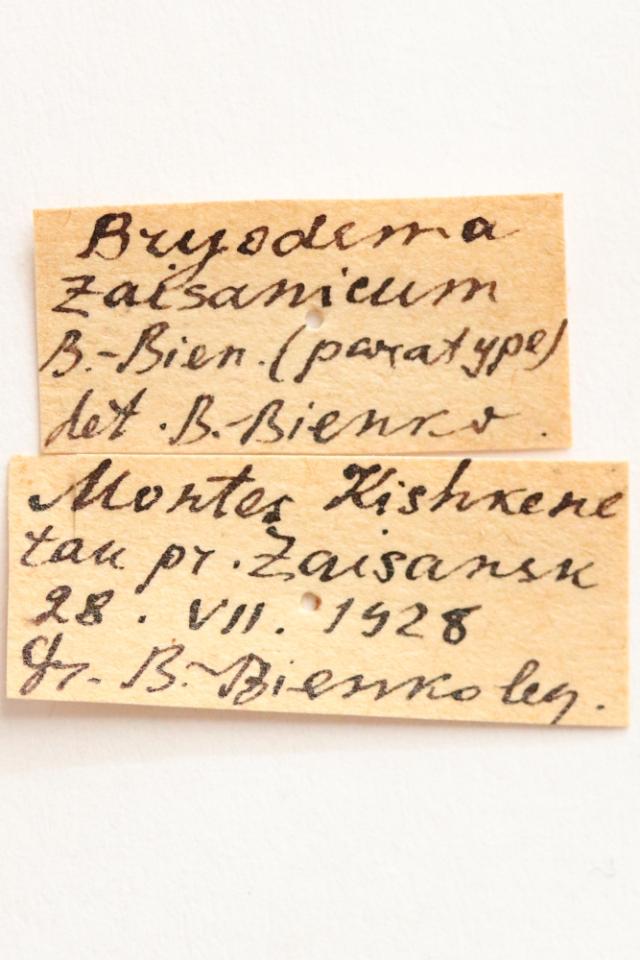 Bryodema
Zaisanicum
B.-Bien. (paratype)
det. B.-Bienko.
Montes Kishkene
tau pr. Zaisansk
28. VII. 1928
Gr. B.-Bienko leg.